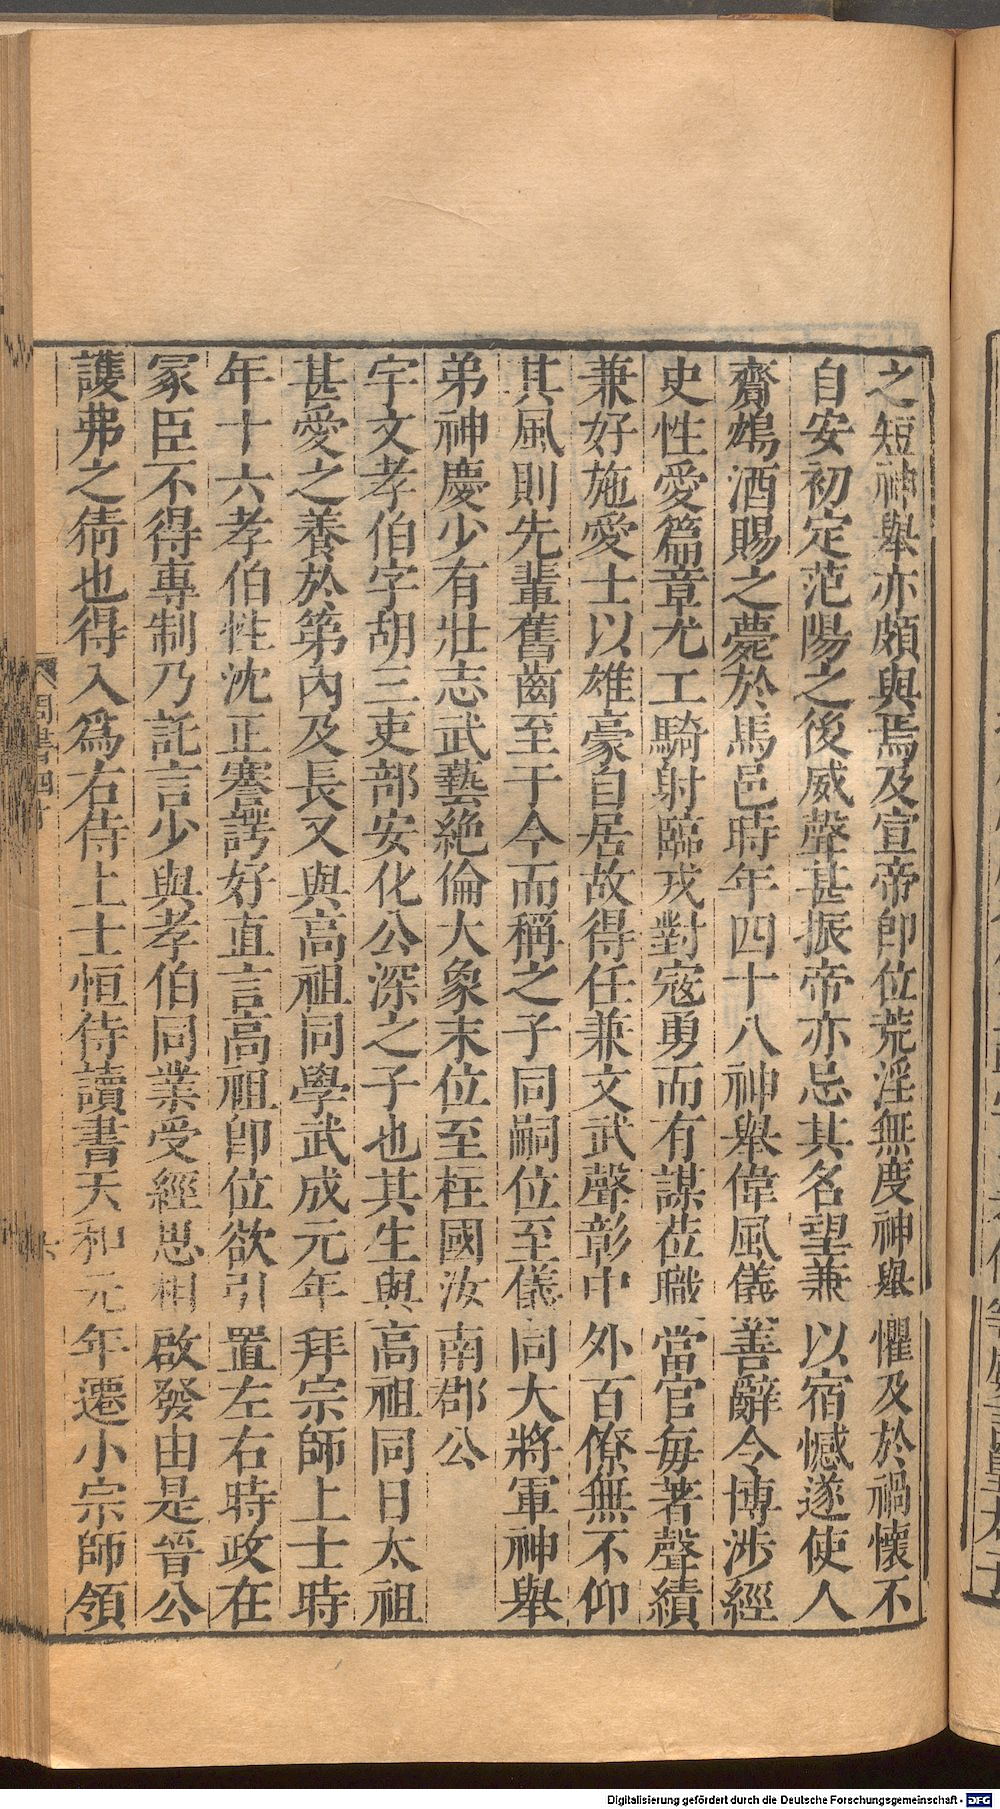 之短神舉亦頗與焉及宣帝卽位荒淫無度神舉懼及於禍懷不
自安初定范陽之後威聲甚振帝亦忌其名望兼以宿憾遂使人
齎鴆酒賜之薨於馬邑時年四十八神舉偉風儀善辭令博涉經
史性愛篇章尤工騎射臨戎對寇勇而有謀莅職當官每著聲績
兼好施愛士以雄豪自居故得任兼文武聲彰中外百僚無不仰
其風則先輩舊齒至于今而稱之子同嗣位至儀同大將軍神舉
弟神慶少有壯志武藝絶倫大象末位至柱國汝南郡公
宇文孝伯字胡三吏部安化公深之子也其生與高祖同日太祖
甚愛之養於第內及長又與高祖同學武成元年拜宗師上士時
年十六孝伯性沈正謇諤好直言高祖卽位欲引置左右時政在
冢臣不得專制乃託言少與孝伯同業受經思相啟發由是晉公
護弗之猜也得入爲右侍上士恒侍讀書天和元年遷小宗師領
周書四十
Digitalisierung gefördert durch die Deutsche Forschungsgemeinschaft - DFG